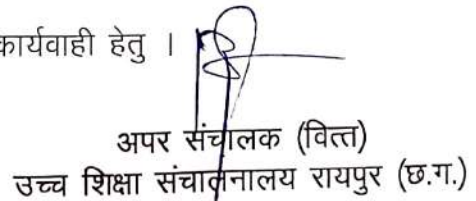 कार्यवाही हेतु ।
अपर संचालक (वित्त)
उच्च शिक्षा संचालनालय रायपुर (छ.ग.)